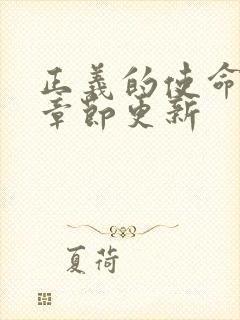 正義的使命
章節更新
夏荷